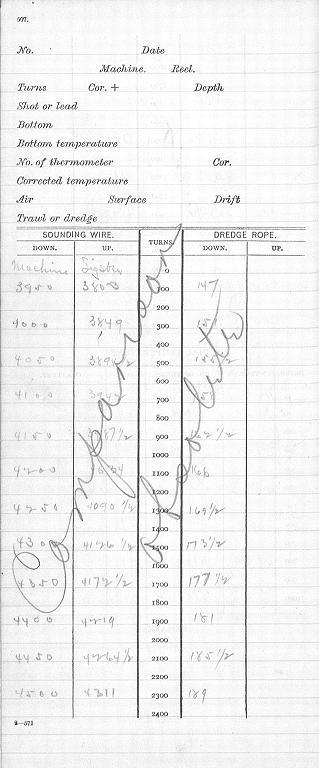 No. Date
Machine. Reel.
Turns Cor. + Depth
Shot or lead
Bottom
Bottom temperature
No. of thermometer Cor.
Corrected temperature
Air Surface Drift
Trawl or dredge
SOUNDING WIRE. TURNS. DREDGE ROPE.
DOWN. UP. DOWN. UP.
Machine Sigsbee 0
3950 3803 100 147
200
4000 3849 300
400
4050 500
600
4100 700
800
4150 900
1000
4200 1100
1200
4250 4090 1/2 1300 169 1/2
1400
4300 4126 1/2 1500 173 1/2
1600
4350 4172 1/2 1700 177 1/2
1800
4400 4219 1900 181
2000
4450 4264 1/2 2100 185 1/2
2200
4500 4311 2300 189
2400
2—571
Comparison
absolute